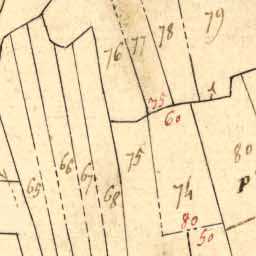 79
78
77
76
75
60
80
P
75
74
68
67
66
65
80
50